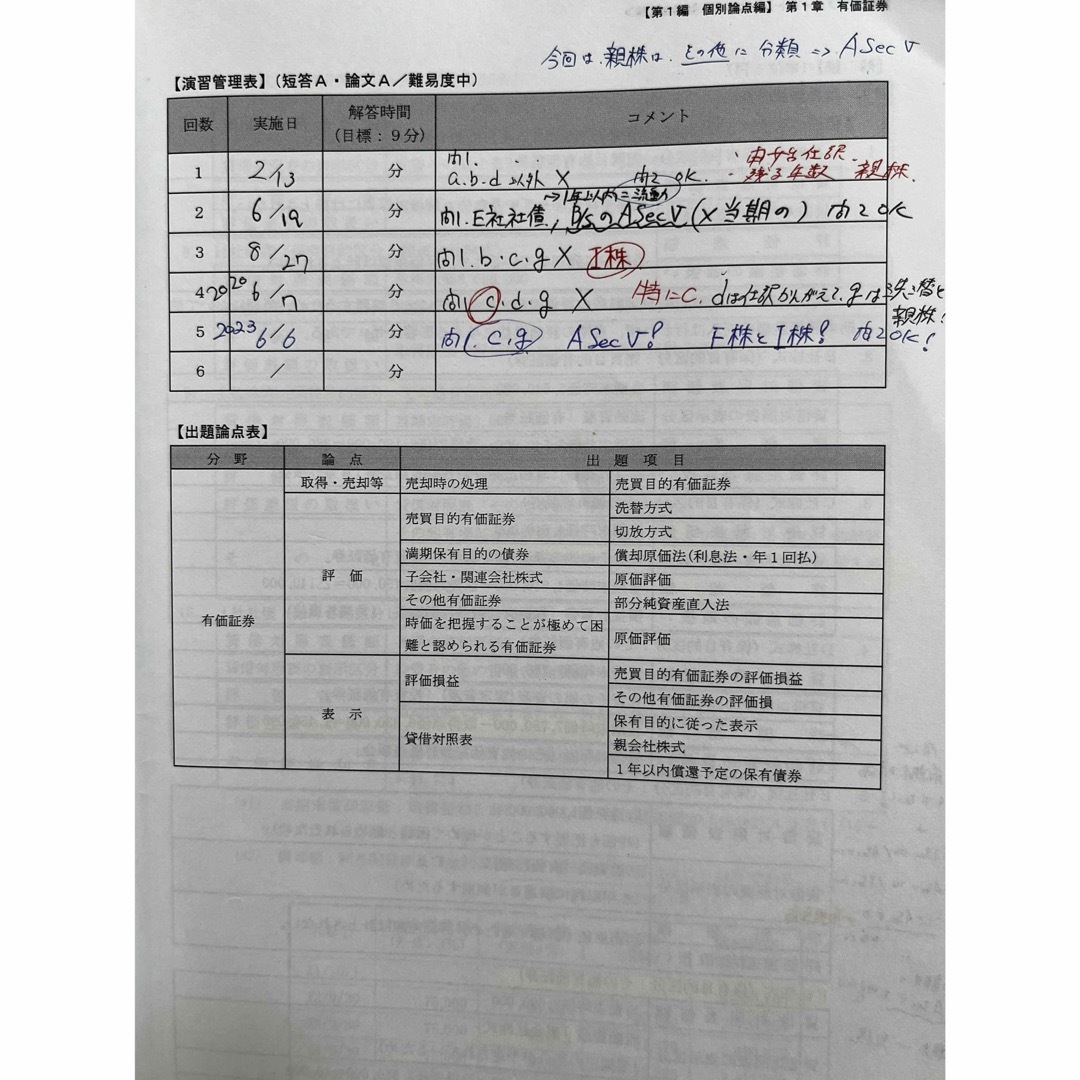 【第1編 個別論点編】 第1章 有価証券
今回は、親株は、その他に分類 ⇒ A Sec V
【演習管理表】(短答A・論文A/難易度中)
回数 実施日 解答時間(目標:9分) コメント
1 2/13 分 内1. a.b.d 以外 X 内2 OK. ・残る年数 親株.
→1年以内に
2 6/19 分 内1. E社社債, B/SのA Sec V (X当期の) 内2 OK
3 8/27 分 内1. b.c.g X I株
4 2020 6/7 分 内1 c.d.g X 特にc. dは仕訳かんがえて、gは洗い替と
親株!
5 2023 6/6 分 内1. c.g A Sec V! F株とI株! 内2 OK!
6 / 分
【出題論点表】
分野 論点 出題項目
取得・売却等 売却時の処理 売買目的有価証券
有価証券 評価 売買目的有価証券 洗替方式
切放方式
満期保有目的の債券 償却原価法(利息法・年1回払)
子会社・関連会社株式 原価評価
その他有価証券 部分純資産直入法
時価を把握することが極めて困
難と認められる有価証券 原価評価
表示 評価損益 売買目的有価証券の評価損益
その他有価証券の評価損
貸借対照表 保有目的に従った表示
親会社株式
1年以内償還予定の保有債券